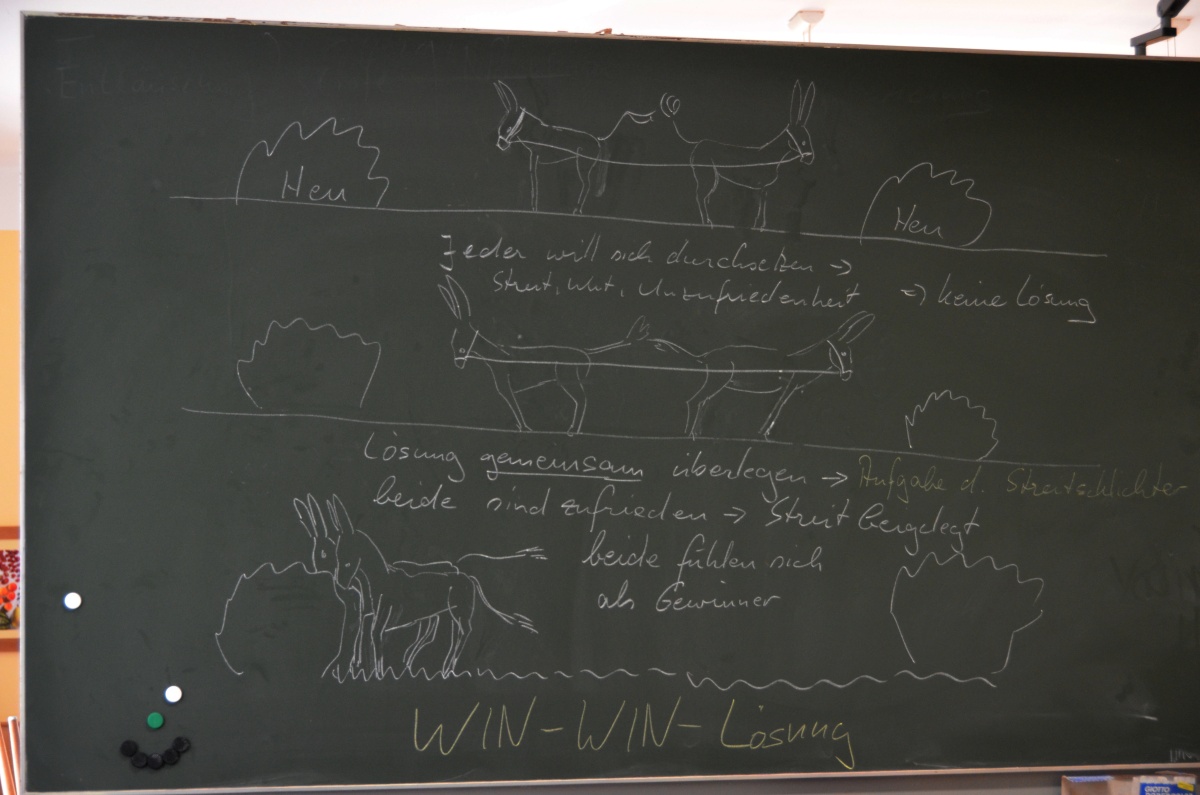 Heu
Heu
Jeder will sich durchsetzen →
Streit, Wut, Unzufriedenheit ⇒ keine Lösung
Lösung gemeinsam überlegen → Aufgabe d. Streitschlichter
beide sind zufrieden → Streit beigelegt
beide fühlen sich
als Gewinner
WIN-WIN-Lösung
GIOTTO